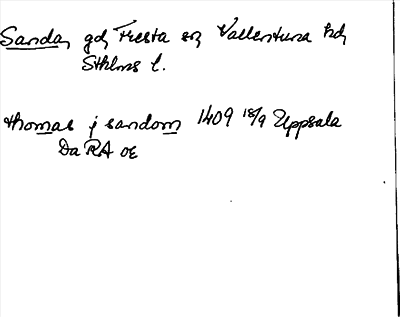 Sanda, gd, Fresta sn Vallentuna hd,
Sthlms l.
thomas j sandom 1409 18/9 Uppsala
Da RA oc